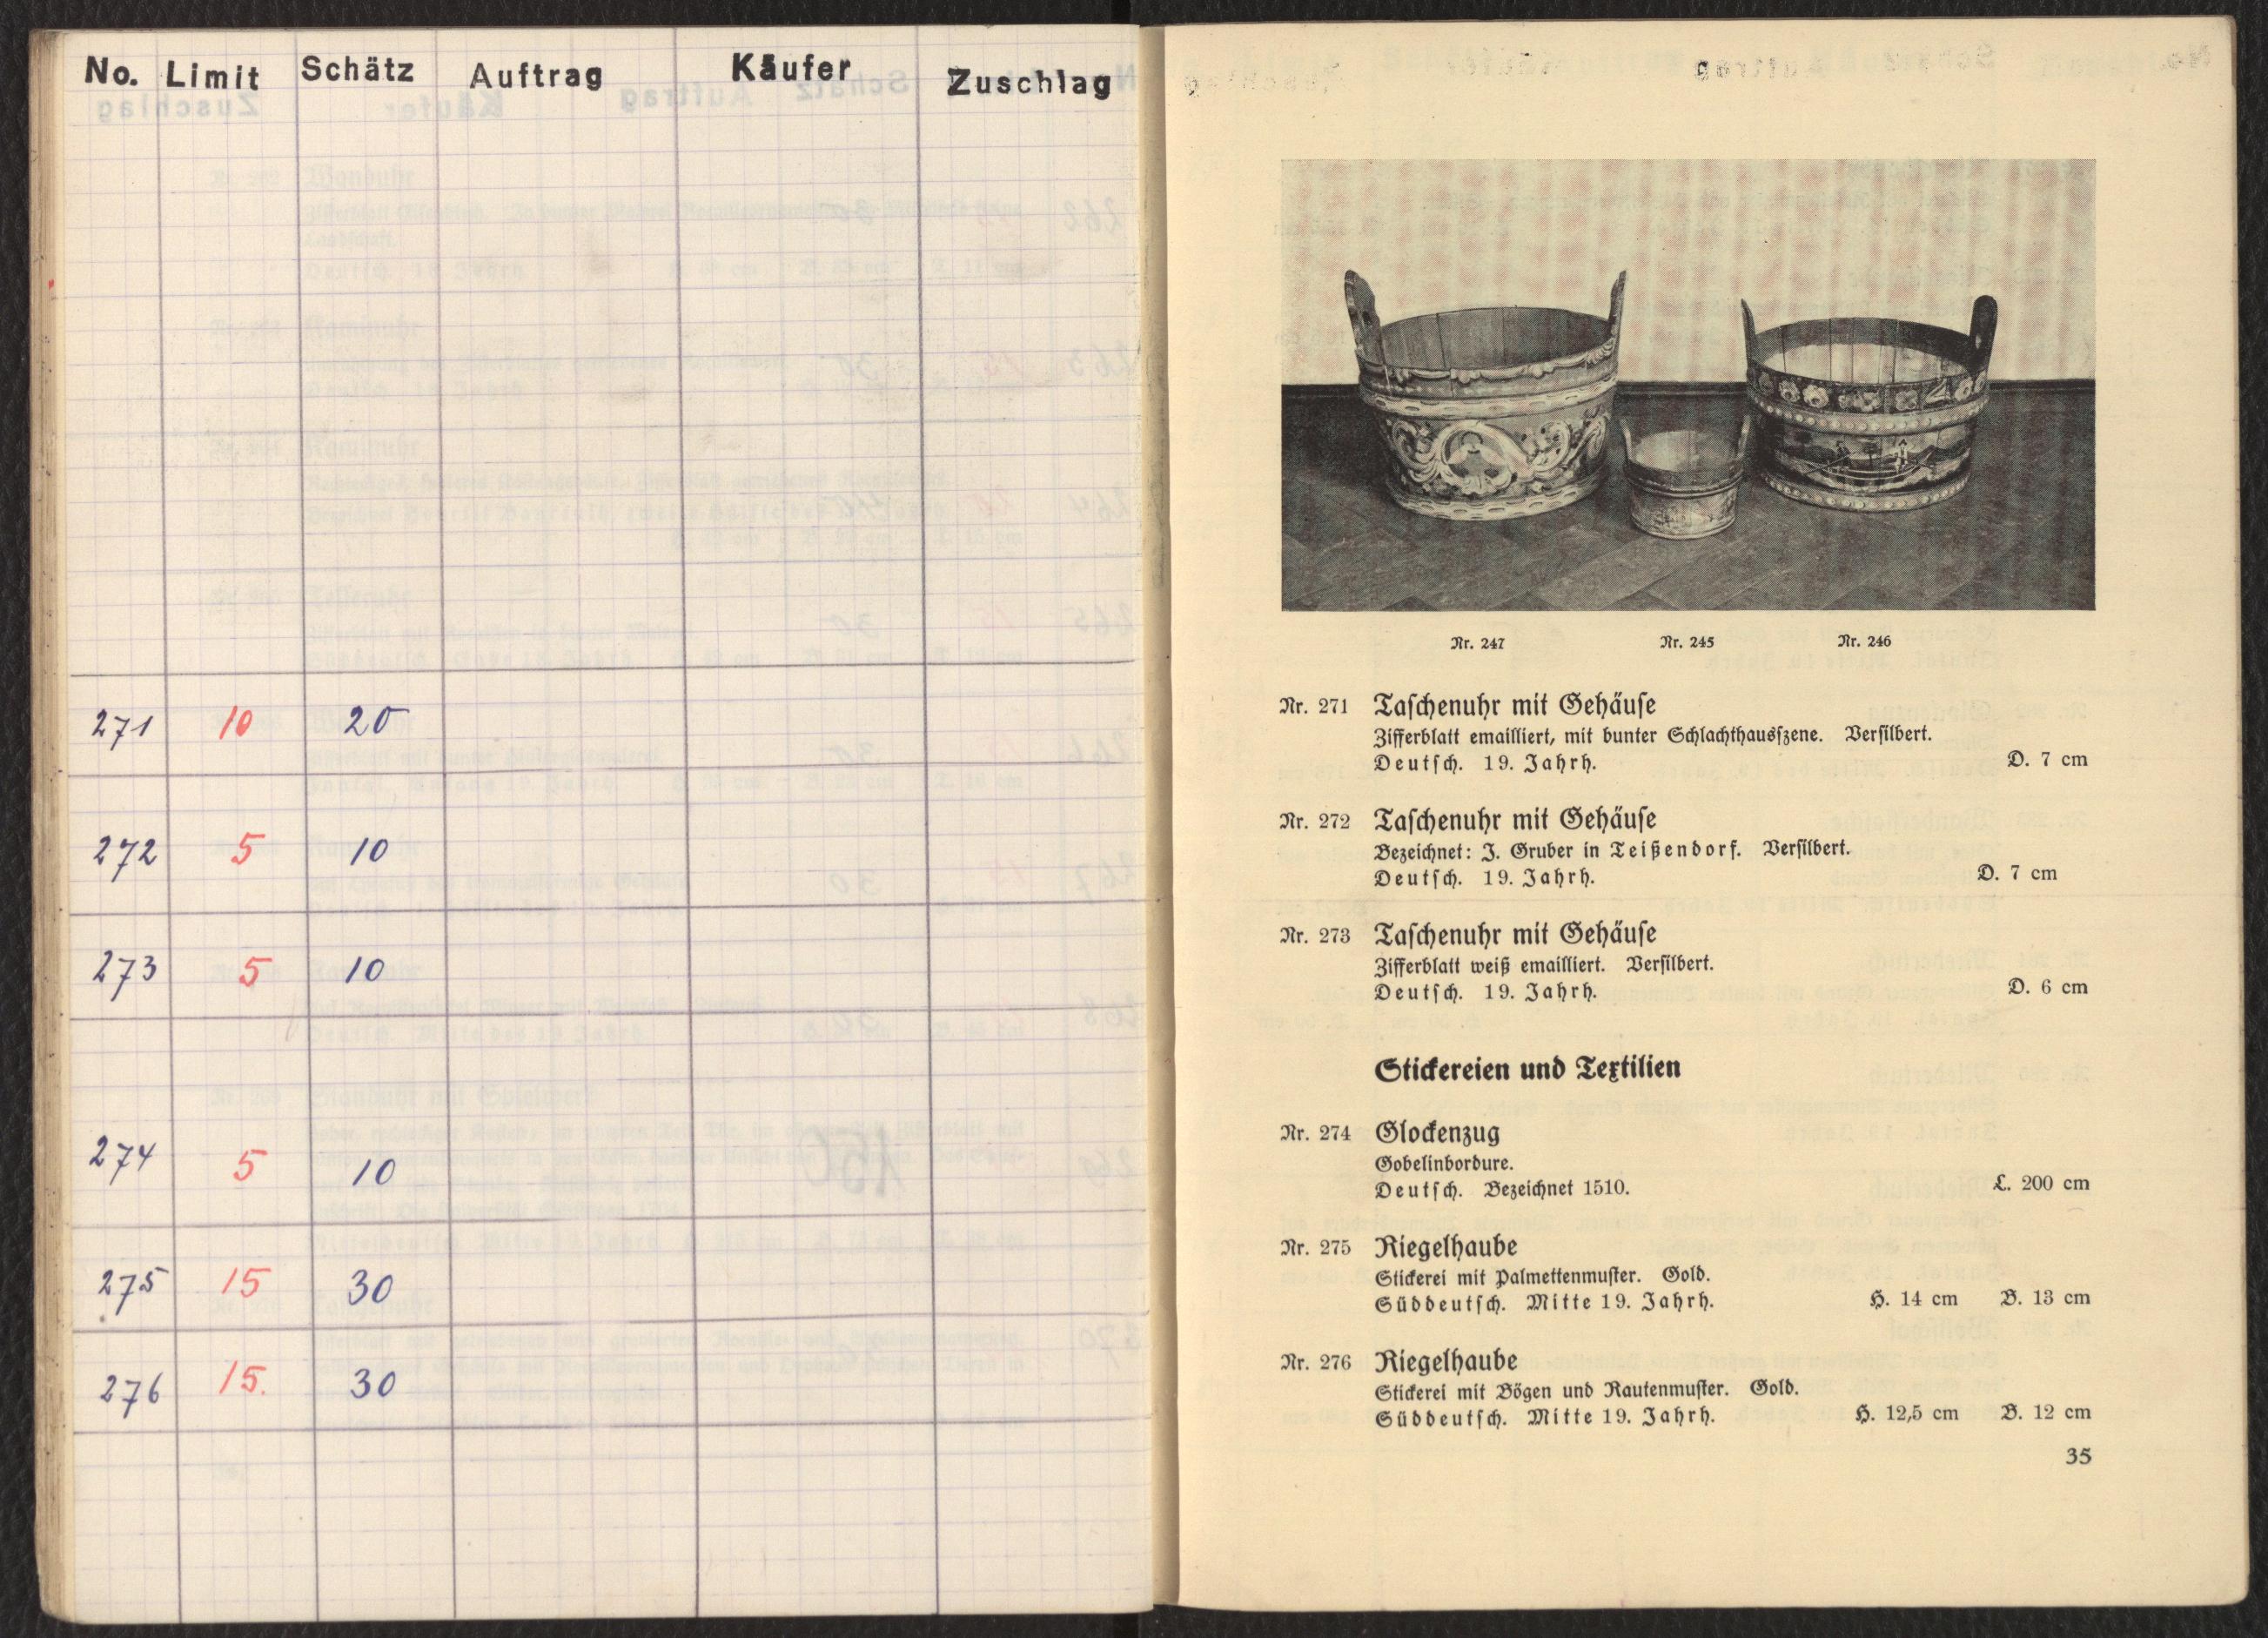 No. Limit Schätz Auftrag Käufer Zuschlag
271 10 20
272 5 10
273 5 10
274 5 10
275 15 30
276 15. 30
Nr. 247 Nr. 245 Nr. 246
Nr. 271 Taſchenuhr mit Gehäuſe
Zifferblatt emailliert, mit bunter Schlachthausſzene. Verſilbert.
Deutſch. 19. Jahrh. D. 7 cm
Nr. 272 Taſchenuhr mit Gehäuſe
Bezeichnet: J. Gruber in Teißendorf. Verſilbert.
Deutſch. 19. Jahrh. D. 7 cm
Nr. 273 Taſchenuhr mit Gehäuſe
Zifferblatt weiß emailliert. Verſilbert.
Deutſch. 19. Jahrh. D. 6 cm
Stickereien und Textilien
Nr. 274 Glockenzug
Gobelinbordure.
Deutſch. Bezeichnet 1510. L. 200 cm
Nr. 275 Riegelhaube
Stickerei mit Palmettenmuſter. Gold.
Süddeutſch. Mitte 19. Jahrh. H. 14 cm B. 13 cm
Nr. 276 Riegelhaube
Stickerei mit Bögen und Rautenmuſter. Gold.
Süddeutſch. Mitte 19. Jahrh. H. 12,5 cm B. 12 cm
35